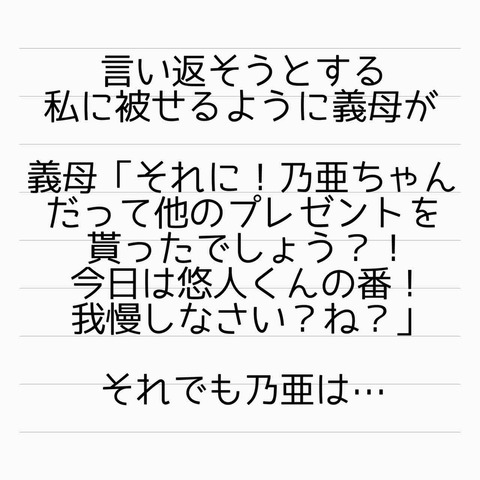 言い返そうとする
私に被せるように義母が
義母「それに！乃亜ちゃん
だって他のプレゼントを
貰ったでしょう？！
今日は悠人くんの番！
我慢しなさい？ね？」
それでも乃亜は…